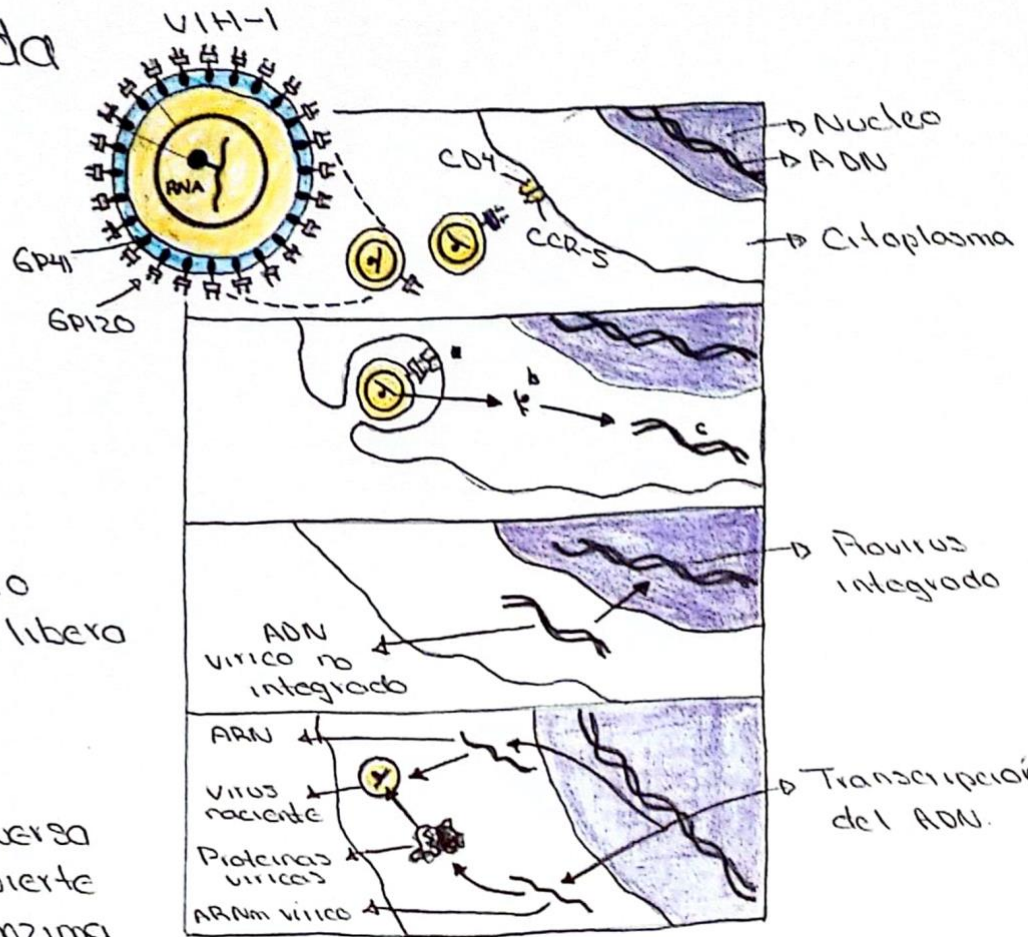 da
VIH-1
RNA
GP41
GP120
CD4
CCR-5
Nucleo
ADN
Citoplasma
a
b
c
o
libera
ADN
virico no
integrado
Provirus
integrado
ARN
Virus
naciente
Proteinas
viricas
ARNm virico
Transcripción
del ADN.
versa
vierte
nzima